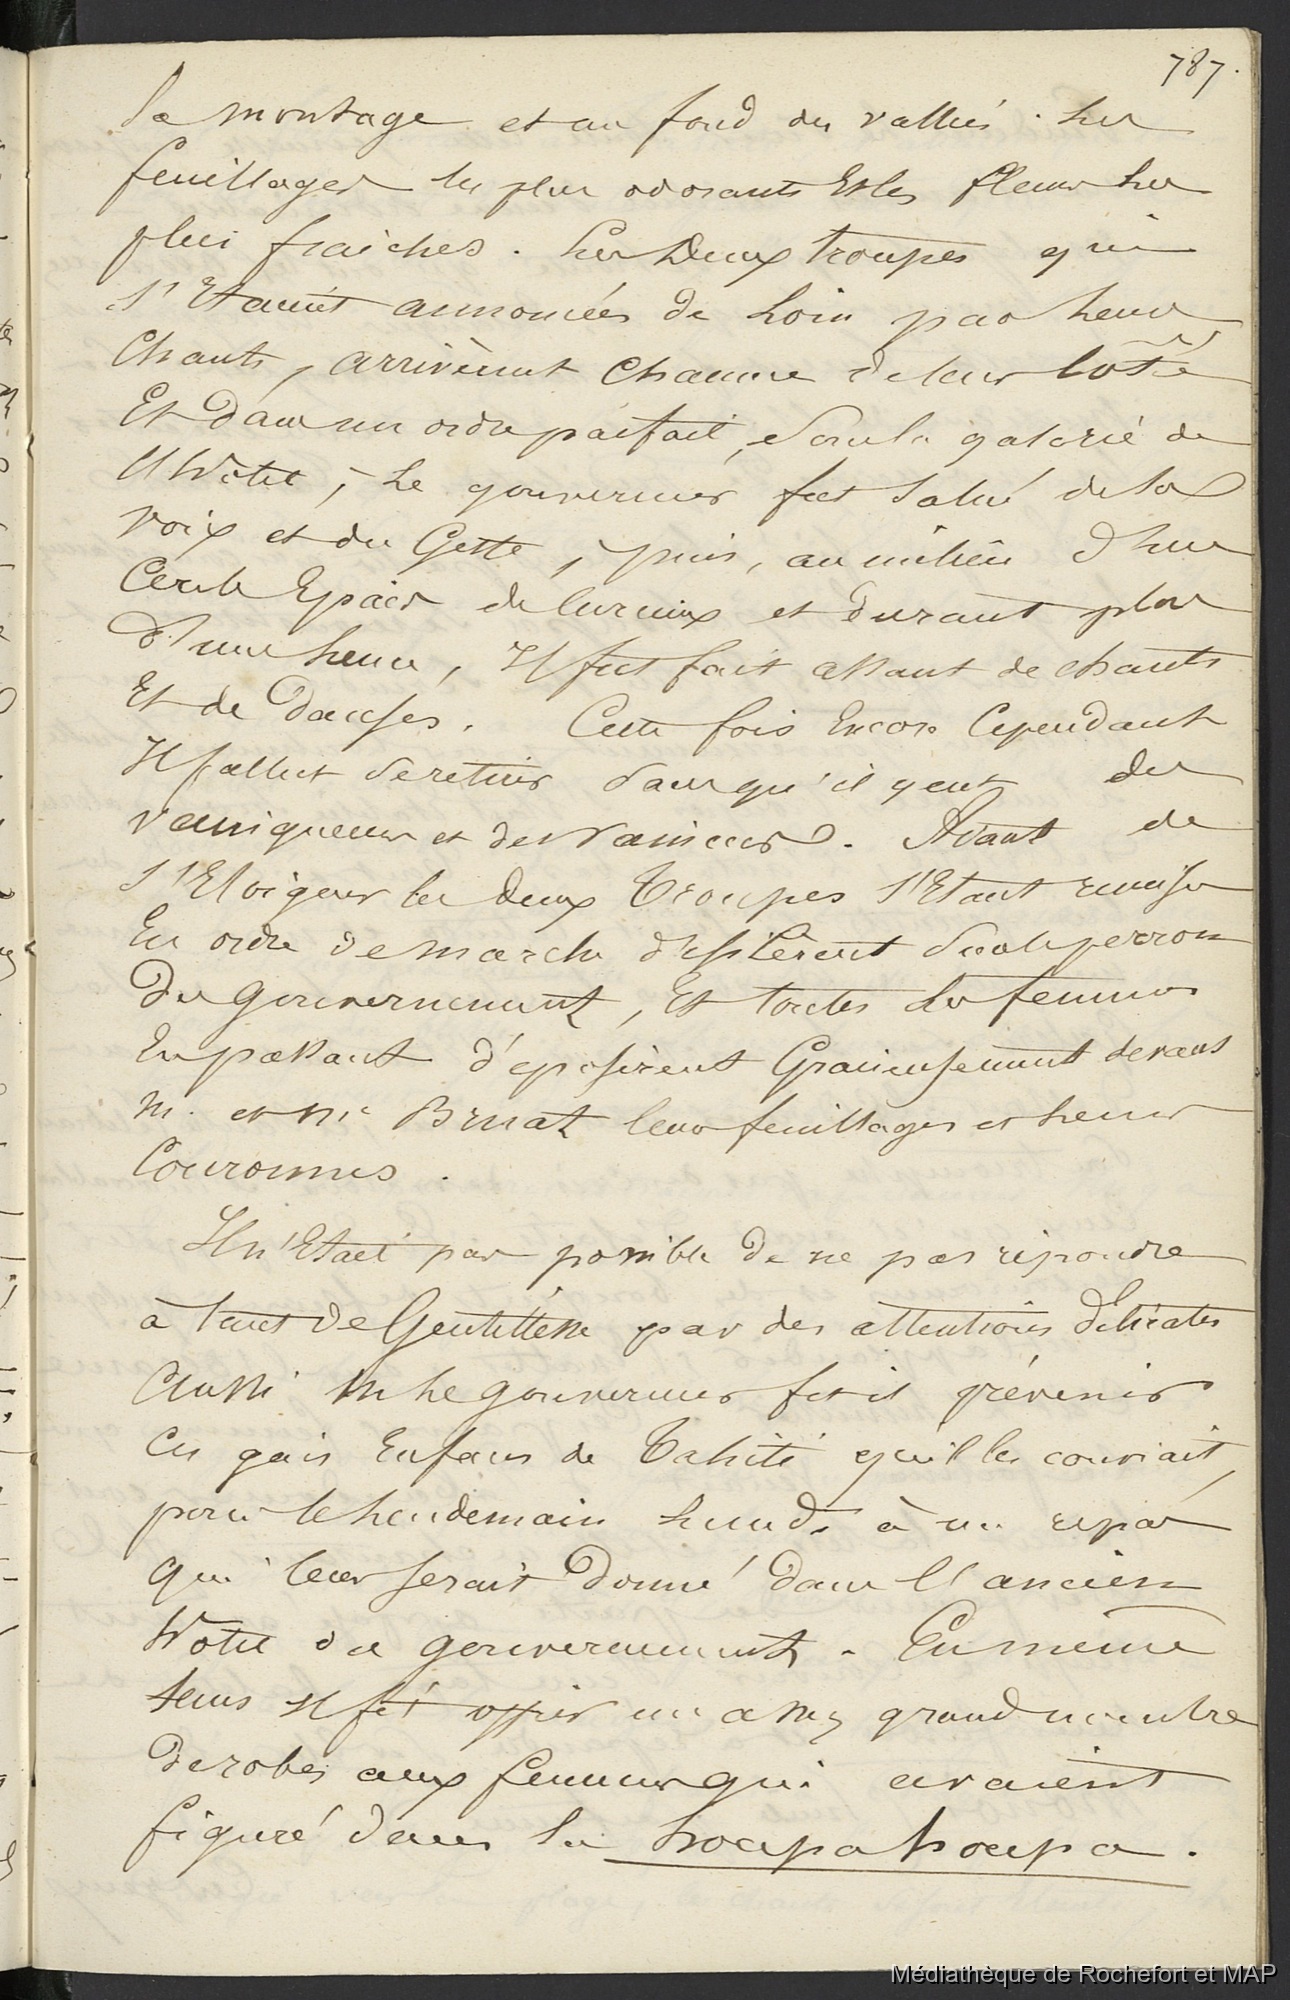 787.
la montagne et au fond des vallées. les
feuillages les plus odorants Et les fleurs les
plus fraiches. les Deux troupes qui
s'Etaient annoncées de loin par leurs
Chants, arrivèrent Chacune de leur Coté
Et Dans un ordre parfait, sous la galerie de
l'hotel, le gouverneur fut salué de la
voix et du Geste, puis, au milieu d'un
Cercle Epais de curieux et durant plus
d'une heure, Il fut fait assaut de chants
Et de Danses. Cette fois Encore Cependant
Il fallut se retirer sans qu'il y eut des
vainqueurs et des vaincus. Avant de
s'Eloigner les Deux troupes s'Etant remises
En ordre de marche défilèrent sous le perron
Du Gouvernement, Et toutes les femmes
En passant déposèrent Gracieusement devant
M. et Me Bruat leurs feuillages et leurs
Couronnes.
Il n'Etait pas possible De ne pas répondre
à tant De Gentillesse par des attentions Délicates
Aussi M le gouverneur fit il prévenir
Ces gais Enfans de Tahiti qu'il les conviait,
pour le lendemain lundi à un repas
Qui leur serait Donné dans l'ancien
hotel du gouvernement. En même
tems Il fit offrir un assez grand nombre
De robes aux femmes qui avaient
figuré dans la houpahoupa.
Médiathèque de Rochefort et MAP